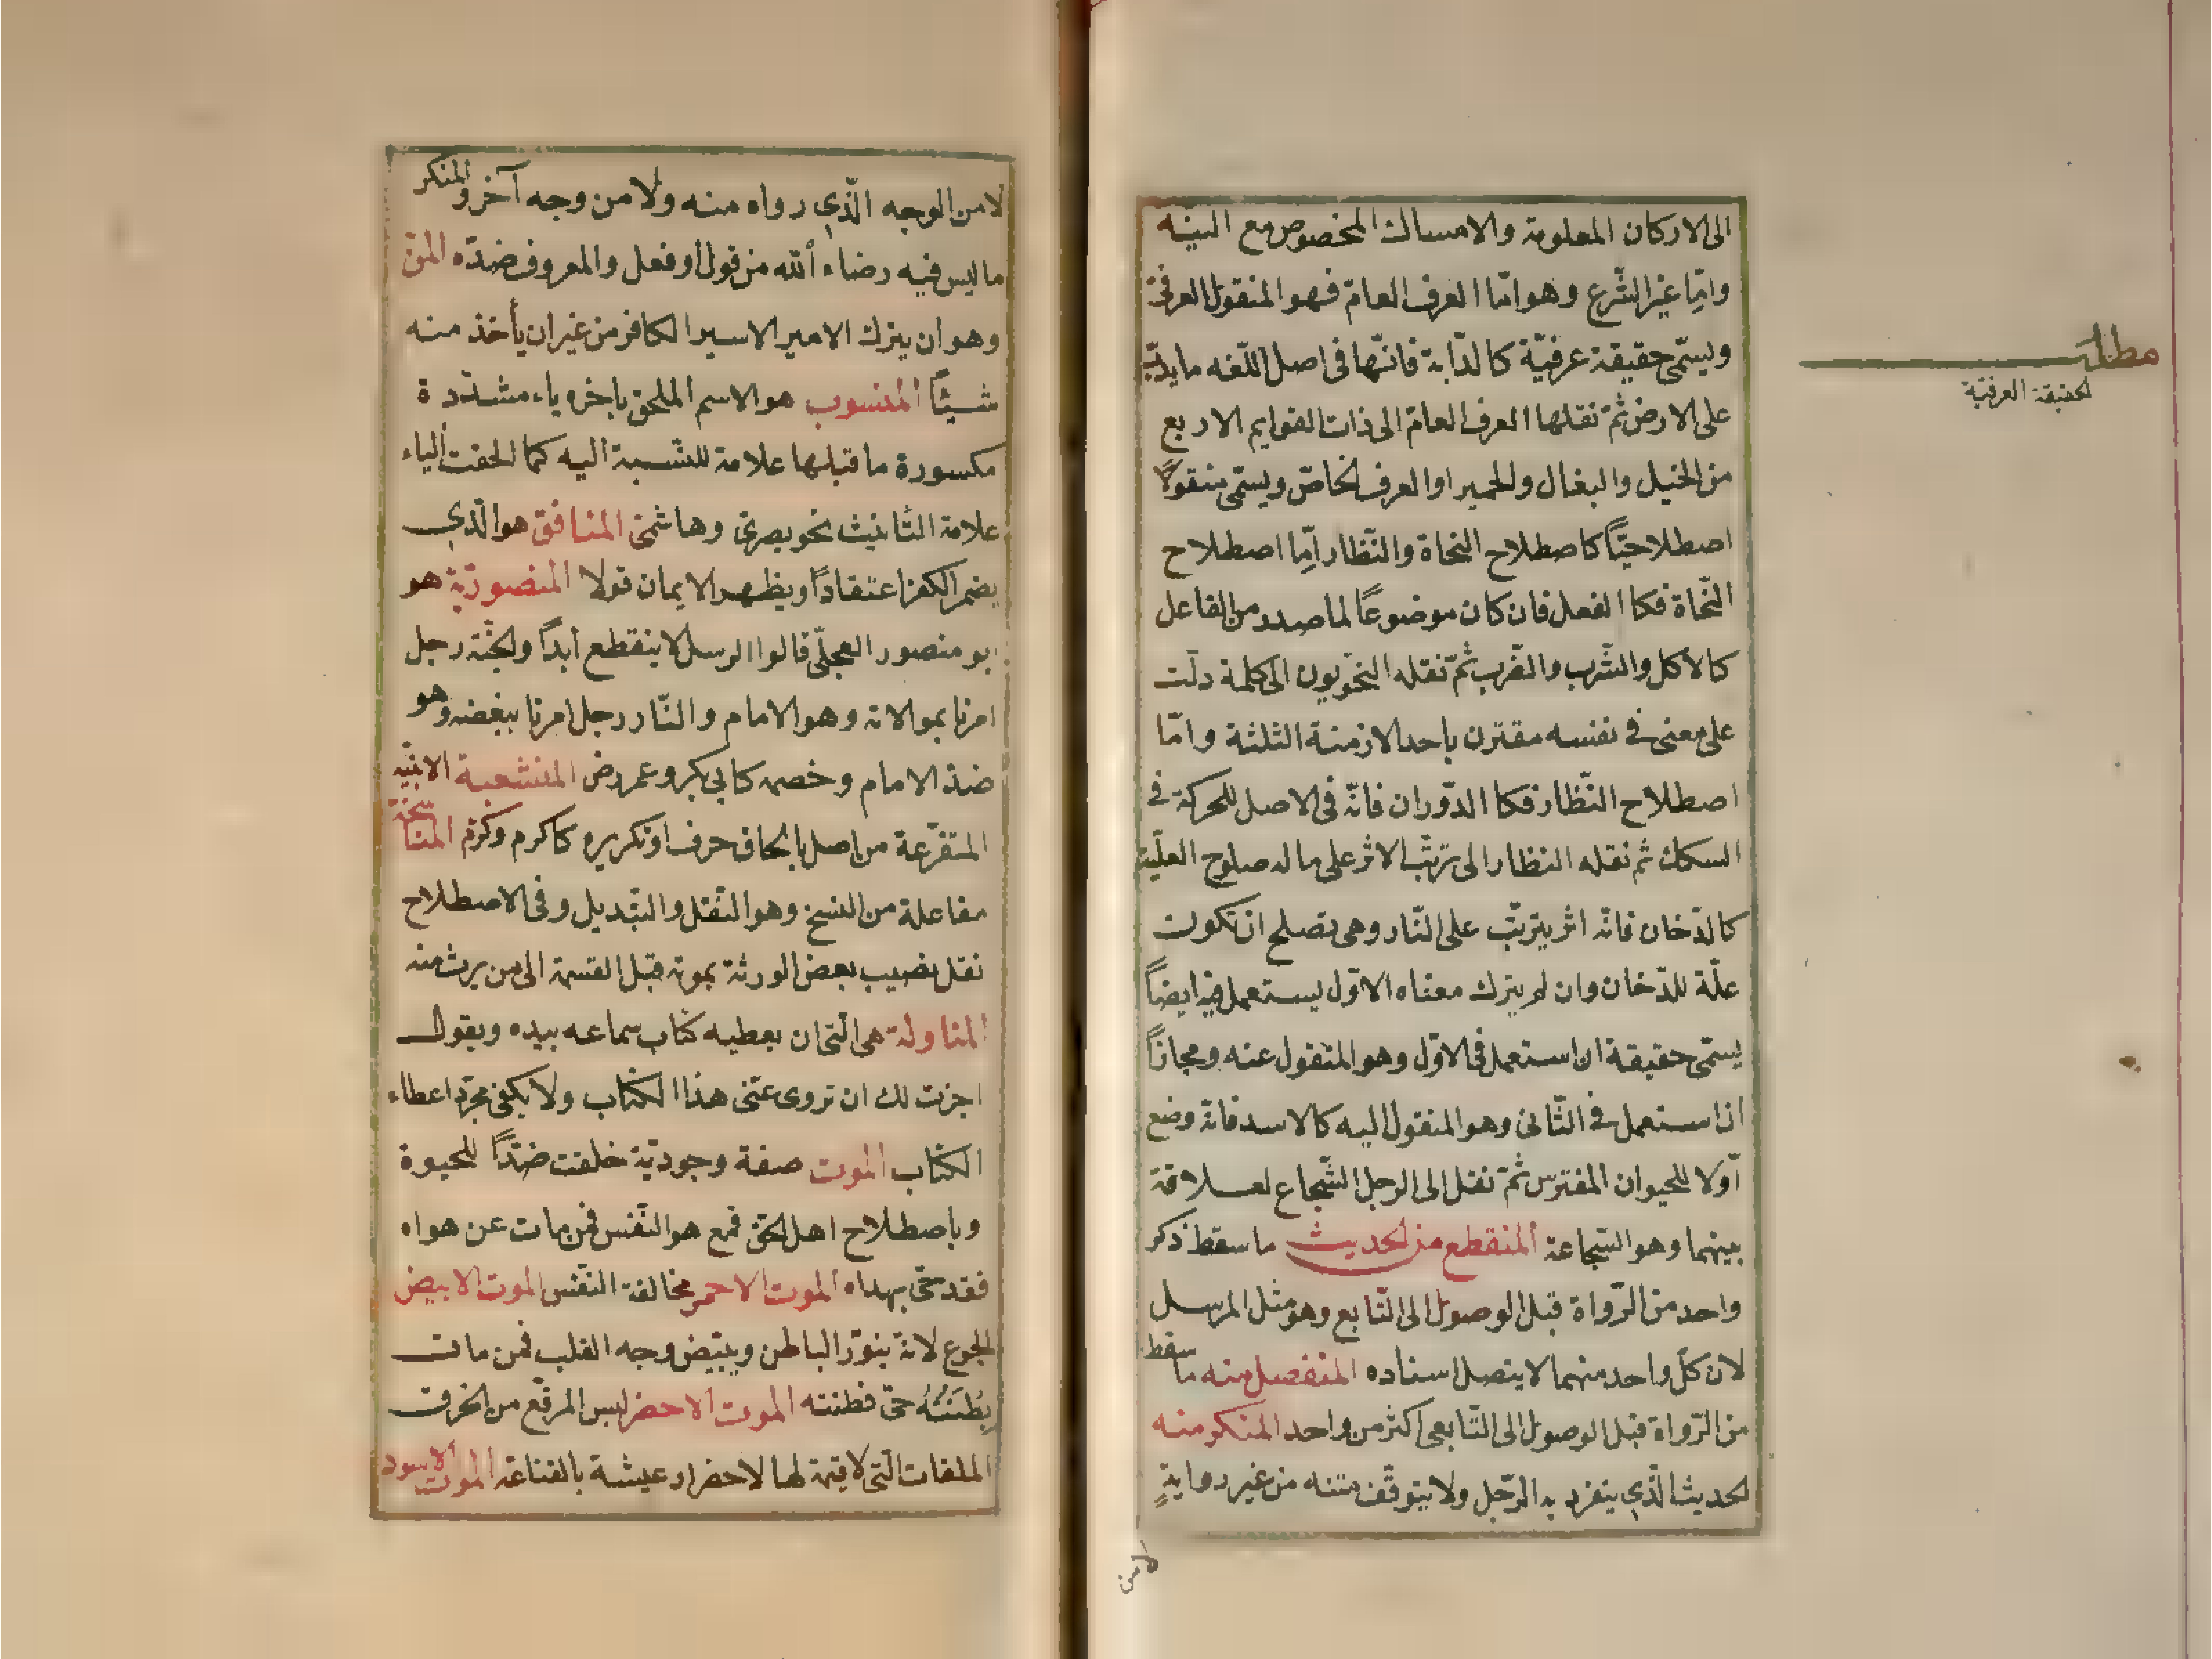 الى الاركان المعلومة والامساك المخصوص مع النية
وامّا غير الشّرع وهو امّا العرف العامّ فهو المنقول العرفىّ
ويسمّى حقيقة عرفيّة كالدّابة فانّها فى اصل اللّغه ما يدبّ
على الارض ثمّ نقلها العرف العامّ الى ذات القوايم الاربع
من الخيل والبغال والحمير او العرف الخاصّ ويسمّى منقولاً
اصطلاحيّاً كاصطلاح النحاة والنّظار امّا اصطلاح
النّحاة فكا الفعل فان كان موضوعاً لما صدر من الفاعل
كالاكل والشّرب والضّرب ثمّ نقله النّحويون الى كلمة دلّت
على معنى فى نفسه مقترن باحد الازمنة الثلثة وامّا
اصطلاح النّظار فكا الدّوران فانّه فى الاصل للحركة فى
السكك ثم نقله النظار الى ترتّب الاثر على ما له صلوح العلّية
كالدّخان فانّه اثر يترتّب على النّار وهى تصلح ان تكون
علّة للدّخان وان لم يترك معناه الاوّل ليستعمل فيه ايضاً
يسمّى حقيقة ان استعمل فى الاوّل وهو المنقول عنه ومجازاً
ان استعمل فى الثّانى وهو المنقول اليه كالاسد فانّه وضع
اوّلا للحيوان المفترس ثمّ نقل الى الرجل الشّجاع لعلاقة
بينهما وهو الشّجاعة المنقطع من الحديث ما سقط ذكر
واحد من الرّواة قبل الوصول الى التّابع وهو مثل المرسل
لان كلّ واحد منهما لا يتصل اسناده المنفصل منه ما سقط
من الرّواة قبل الوصول الى التّابعى اكثر من واحد المنكر منه
الحديث الّذى ينفرد به الرّجل ولا يتوقّف متنه من غير رواية
لا من
مطلب
الحقيقة العرفيّة
لا من الوجه الّذى رواه منه ولا من وجه آخر والمنكر
ما ليس فيه رضاء الله من قول او فعل والمعروف ضدّه المنّ
وهو ان يترك الامير الاسير الكافر من غير ان يأخذ منه
شيئاً المنسوب هو الاسم الملحق باخره ياء مشدّدة
مكسورة ما قبلها علامة للنّسبة اليه كما الحقت الياء
علامة التّانيث نحو بصرىّ وهاشمىّ المنافق هو الّذى
يضمر الكفر اعتقاداً ويظهر الايمان قولا المنصوريّة هو
ابو منصور العجلّى قالوا الرسل لا ينقطع ابداً والجنّة رجل
امرنا بموالاته وهو الامام والنّار رجل امرنا ببغضه وهو
ضدّ الامام وخصمه كابى بكر وعمر رض المنشعبة الابنية
المتفرّعة من اصل بالحاق حرف او تكريره كاكرم وكرّم المناسخة
مفاعلة من النسخ وهو النّقل والتّبديل وفى الاصطلاح
نقل نصيب بعض الورثة بموته قبل القسمة الى من يرث منه
المناولة هى التى ان يعطيه كتاب سماعه بيده ويقول
اجزت لك ان تروى عنّى هذا الكتاب ولا يكفى مجرّد اعطاء
الكتاب الموت صفة وجوديّة خلقت ضدّاً للحيوة
وباصطلاح اهل الحقّ قمع هو النّفس فمن مات عن هواه
فقد حىّ بهداه الموت الاحمر مخالفة النّفس الموت الابيض
الجوع لانّه ينوّر الباطن ويبيّض وجه القلب فمن ماتت
بُطْنَتُهُ حىّ فطنته الموت الاخضر لبس المرقّع من الخرق
الملقات الّتى لا قيمة لها لاخضرار عيشة بالقناعة الموت الاسود